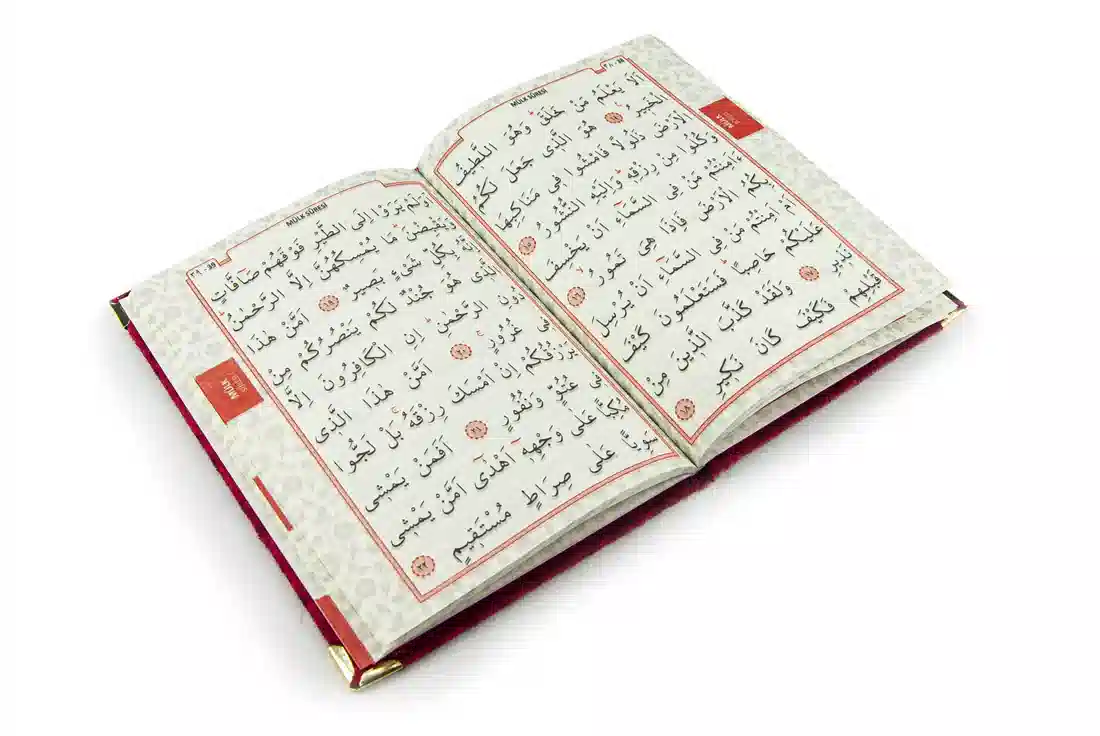 MÜLK SÛRESİ
٣٨ - 38
اَلَا يَعْلَمُ مَنْ خَلَقَ وَهُوَ اللَّطٖيفُ
الْخَبٖيرُ ١٤ هُوَ الَّذٖى جَعَلَ لَكُمُ
الْاَرْضَ ذَلُولًا فَامْشُوا فٖى مَنَاكِبِهَا
وَكُلُوا مِنْ رِزْقِهٖ وَاِلَيْهِ النُّشُورُ ١٥
ءَاَمِنْتُمْ مَنْ فِى السَّمَٓاءِ اَنْ يَخْسِفَ
بِكُمُ الْاَرْضَ فَاِذَا هِىَ تَمُورُ ١٦
اَمْ اَمِنْتُمْ مَنْ فِى السَّمَٓاءِ اَنْ يُرْسِلَ
عَلَيْكُمْ حَاصِبًا فَسَتَعْلَمُونَ كَيْفَ
نَذٖيرِ ١٧ وَلَقَدْ كَذَّبَ الَّذٖينَ مِنْ
قَبْلِهِمْ فَكَيْفَ كَانَ نَكٖيرِ ١٨
MÜLK
SÛRESİ
MÜLK SÛRESİ
٣٩ - 39
اَوَلَمْ يَرَوْا اِلَى الطَّيْرِ فَوْقَهُمْ صَٓافَّاتٍ
وَيَقْبِضْنَ مَا يُمْسِكُهُنَّ اِلَّا الرَّحْمٰنُ
اِنَّهُ بِكُلِّ شَىْءٍ بَصٖيرٌ ١٩ اَمَّنْ هٰذَا
الَّذٖى هُوَ جُنْدٌ لَكُمْ يَنْصُرُكُمْ مِنْ
دُونِ الرَّحْمٰنِ اِنِ الْكَافِرُونَ اِلَّا
فٖى غُرُورٍ ٢٠ اَمَّنْ هٰذَا الَّذٖى
يَرْزُقُكُمْ اِنْ اَمْسَكَ رِزْقَهُ بَلْ لَجُّوا
فٖى عُتُوٍّ وَنُفُورٍ ٢١ اَفَمَنْ يَمْشٖى
مُكِبًّا عَلٰى وَجْهِهٖٓ اَهْدٰٓى اَمَّنْ يَمْشٖى
سَوِيًّا عَلٰى صِرَاطٍ مُسْتَقٖيمٍ ٢٢
MÜLK
SÛRESİ